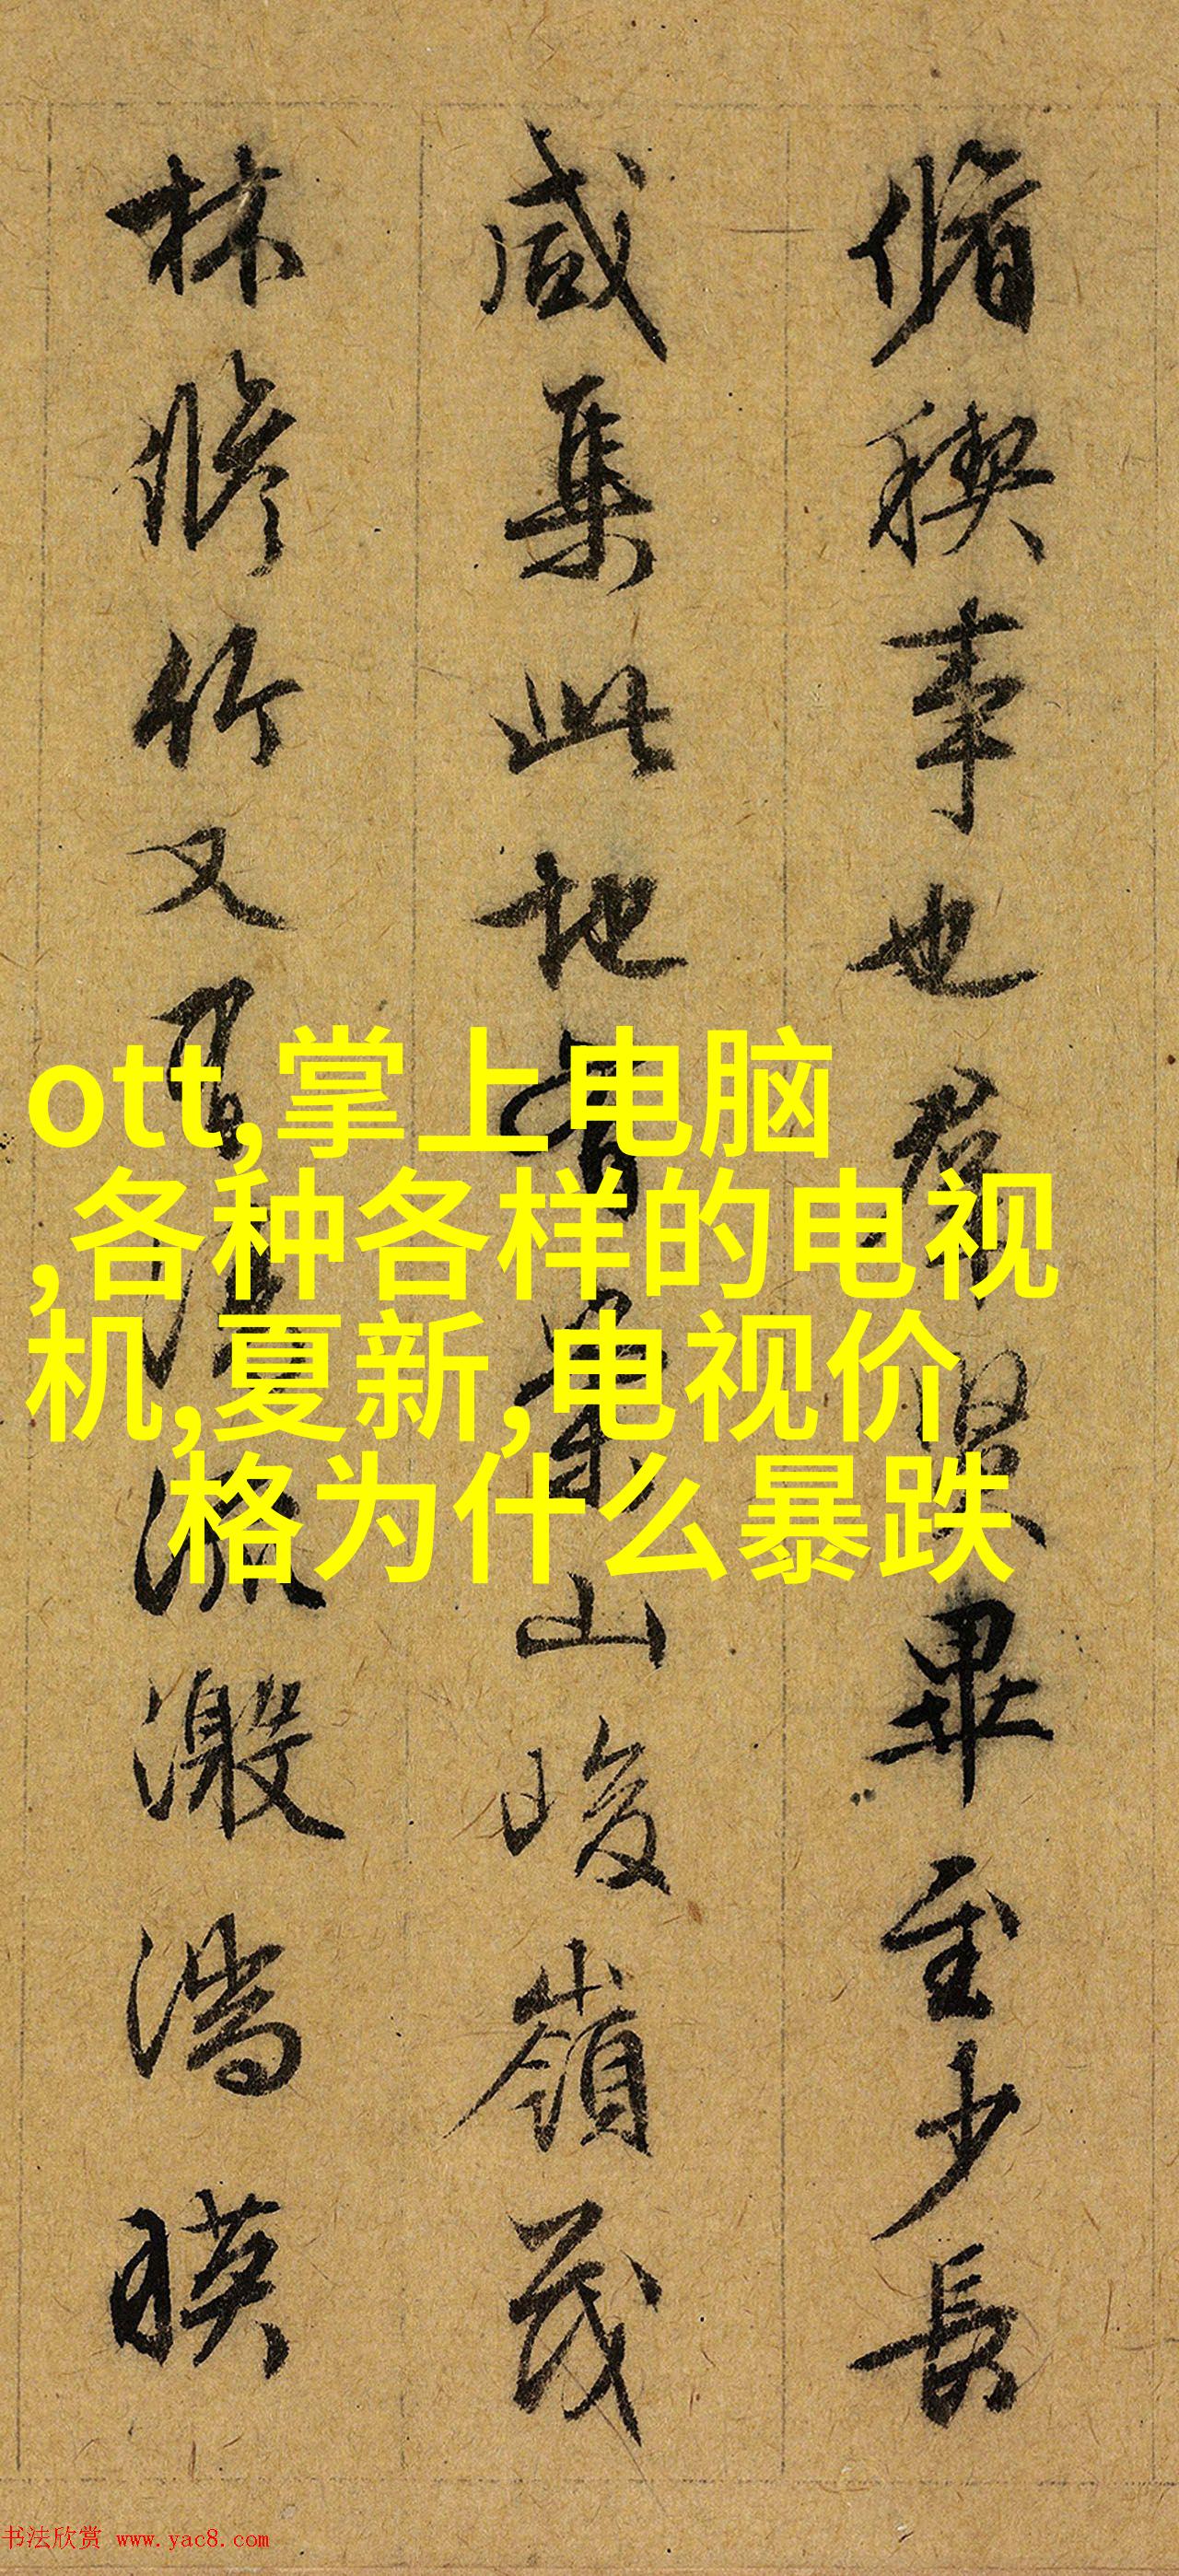 脩稧事也羣賢畢至少長
咸集此地有崇山峻嶺茂
林脩竹又有清流激湍暎
ott,掌上电脑
,各种各样的电视
机,夏新,电视价
格为什么暴跌
书法欣赏 www.yac8.com